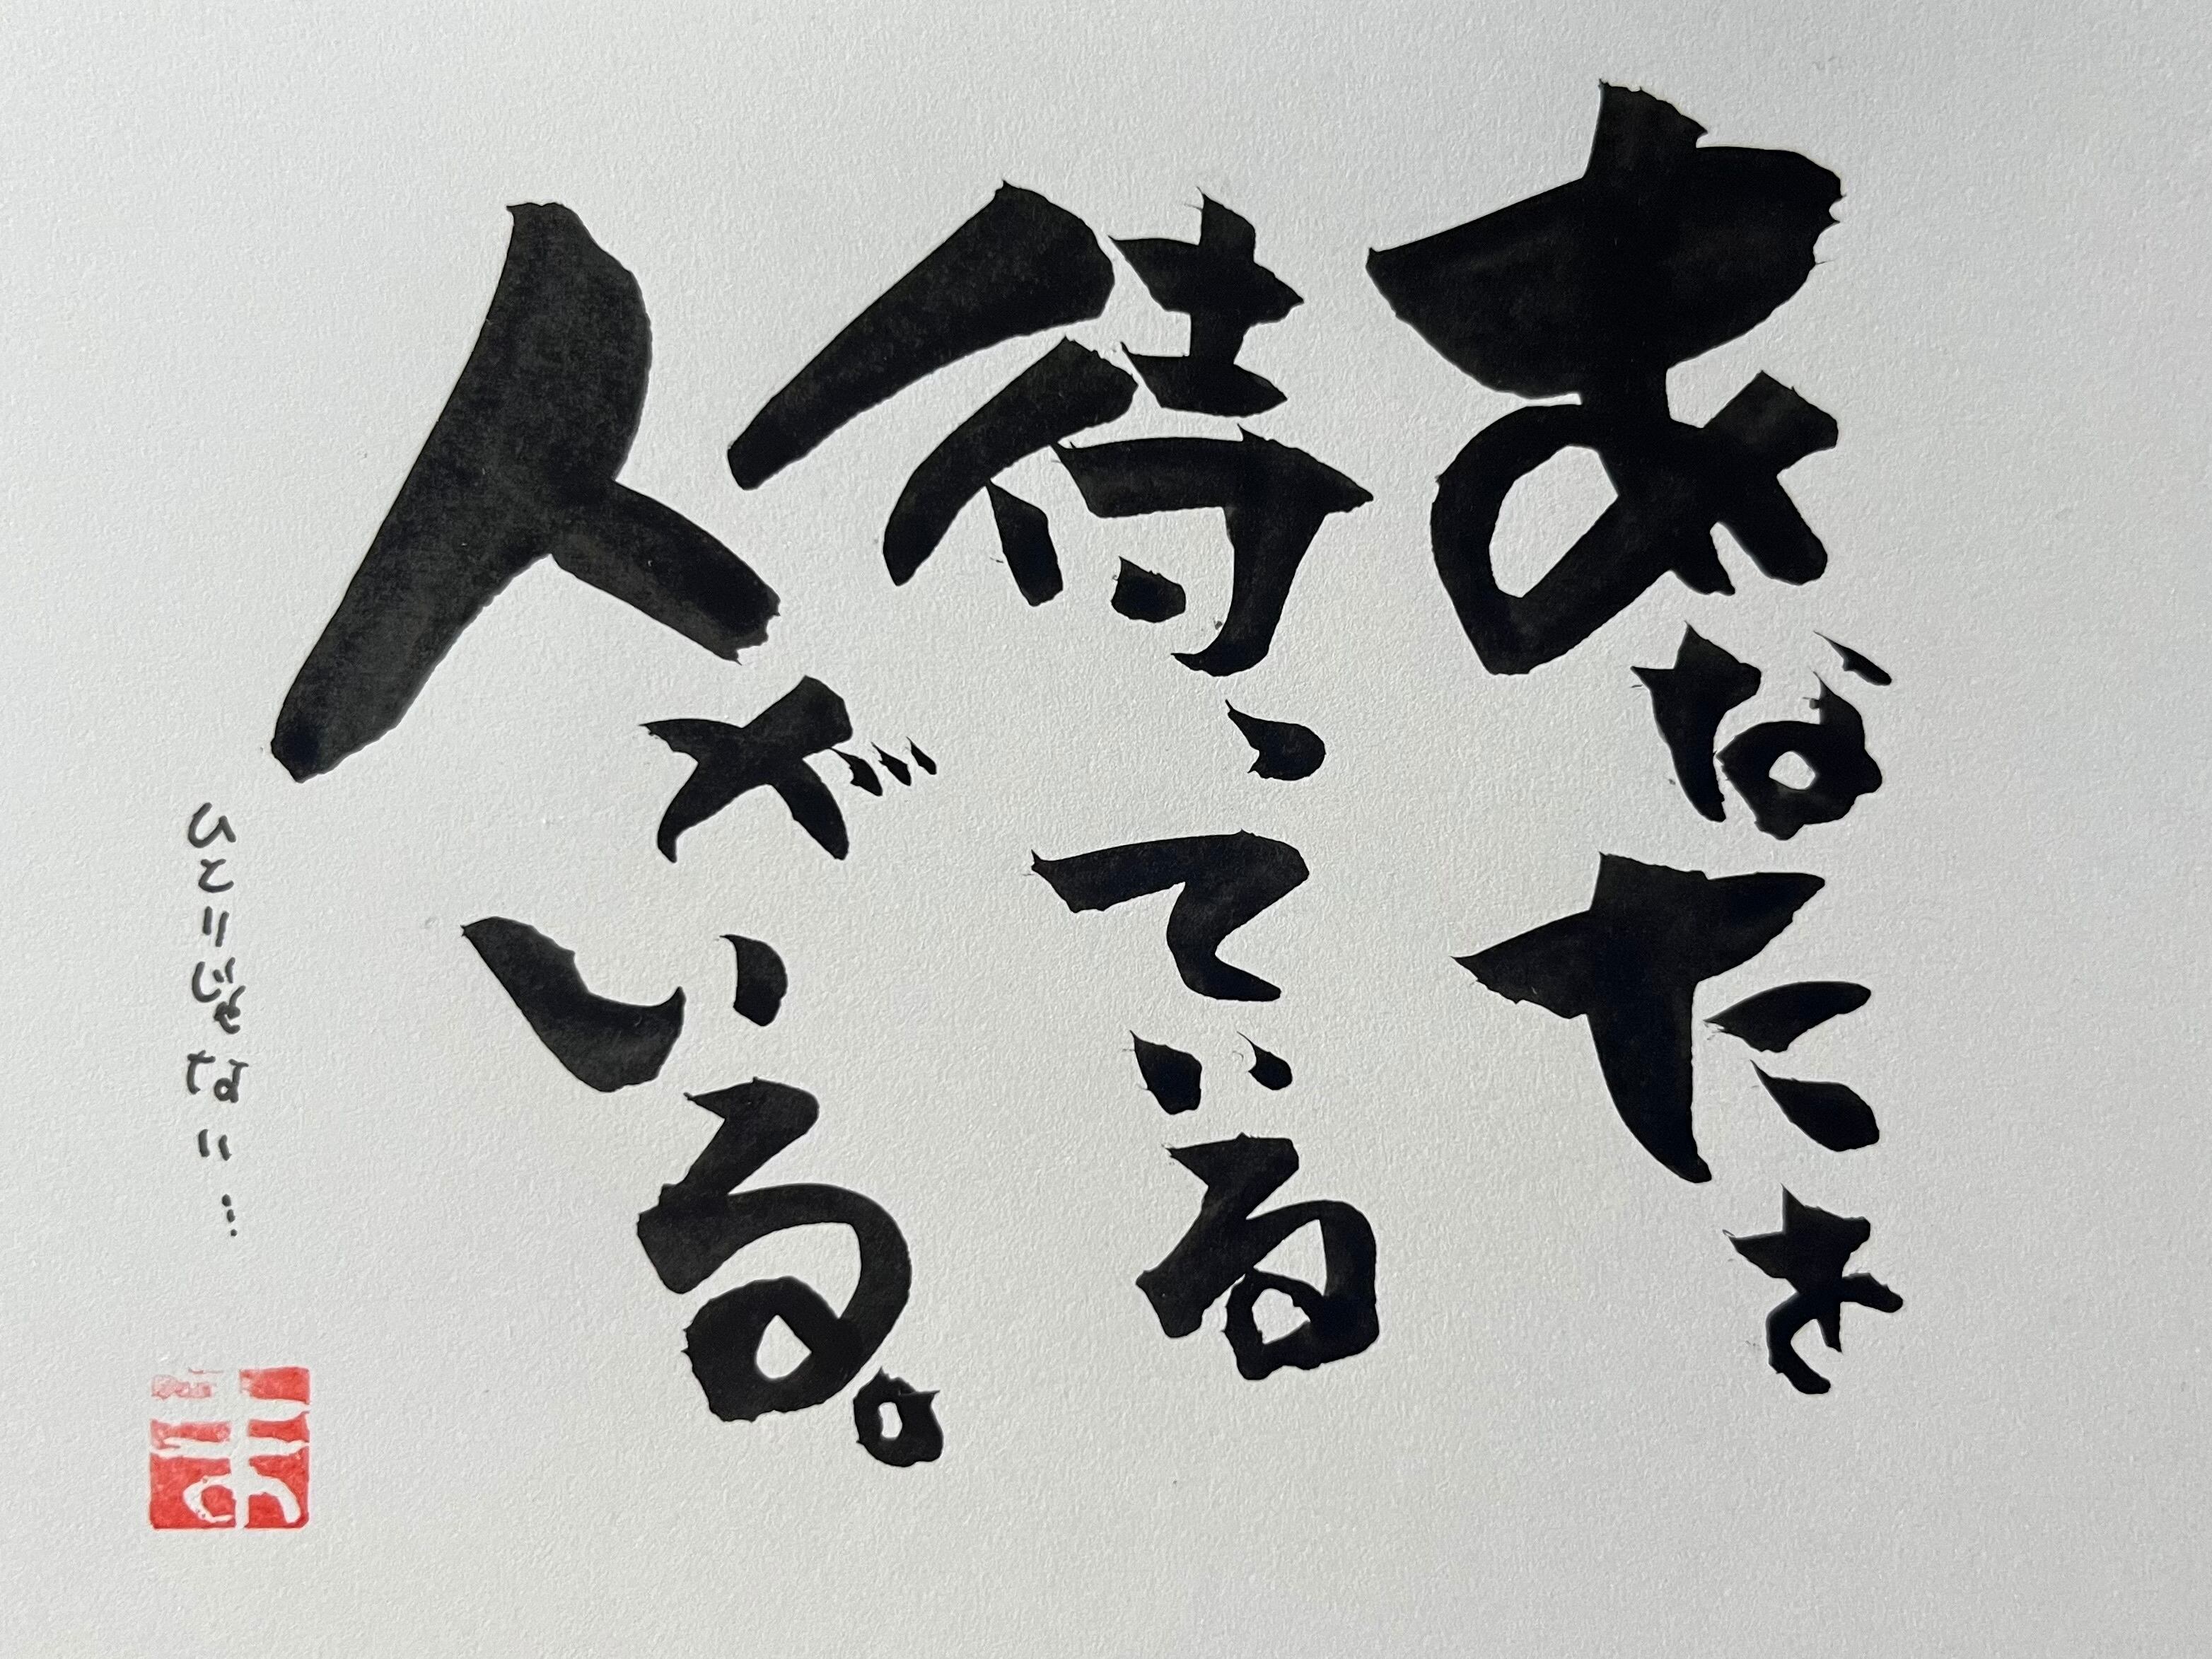 あなたを
待っている
人がいる。
ひとりじゃない…